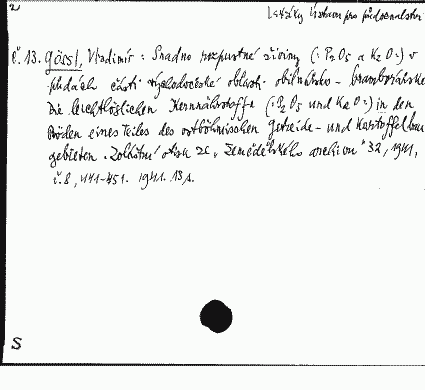 2
ústavu pro půdoznalství
č. 13. Gössl, Vladimír: Snadno rozpustné živiny (: P2 O5 a K2 O :) v
půdách části východočeské oblasti obilnářsko - bramborářské
Die leichtlöslichen Kernnährstoffe (: P2 O5 und K2 O :) in den
Böden eines Teiles des ostböhmischen Getreide- und Kartoffelbau
gebieten. Zvláštní otisk ze „Zemědělského archivu" 32, 1941,
č. 8, 441-451. 1941. 13 s.
S